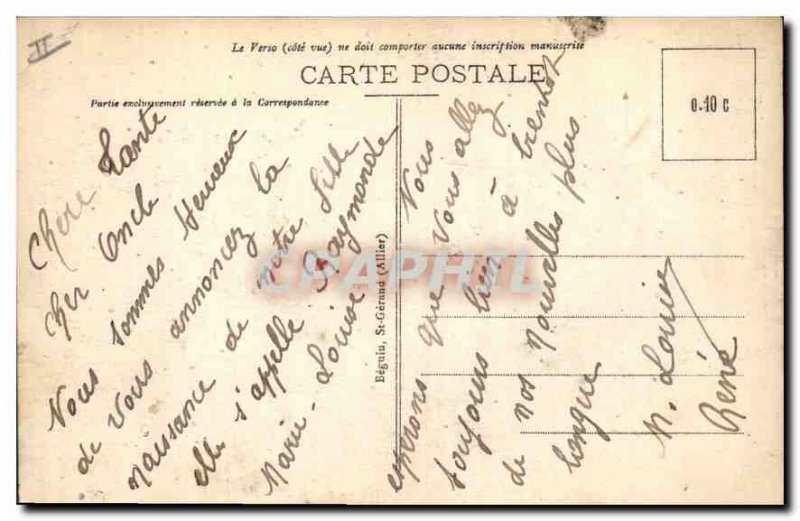 II
Le Verso (côté vue) ne doit comporter aucune inscription manuscrite
CARTE POSTALE
Partie exclusivement réservée à la Correspondance
0.10 c
Chère Tante
Cher Oncle
Nous sommes heureux
de vous annoncez la
naissance de notre fille
elle s'appelle Raymonde
Marie-Louise
Béguin, St-Gérand (Allier)
Nous
esperons que vous allez
toujours bien à bientôt
de nos nouvelles plus
longue
M. Louise
René
CPAPHIL